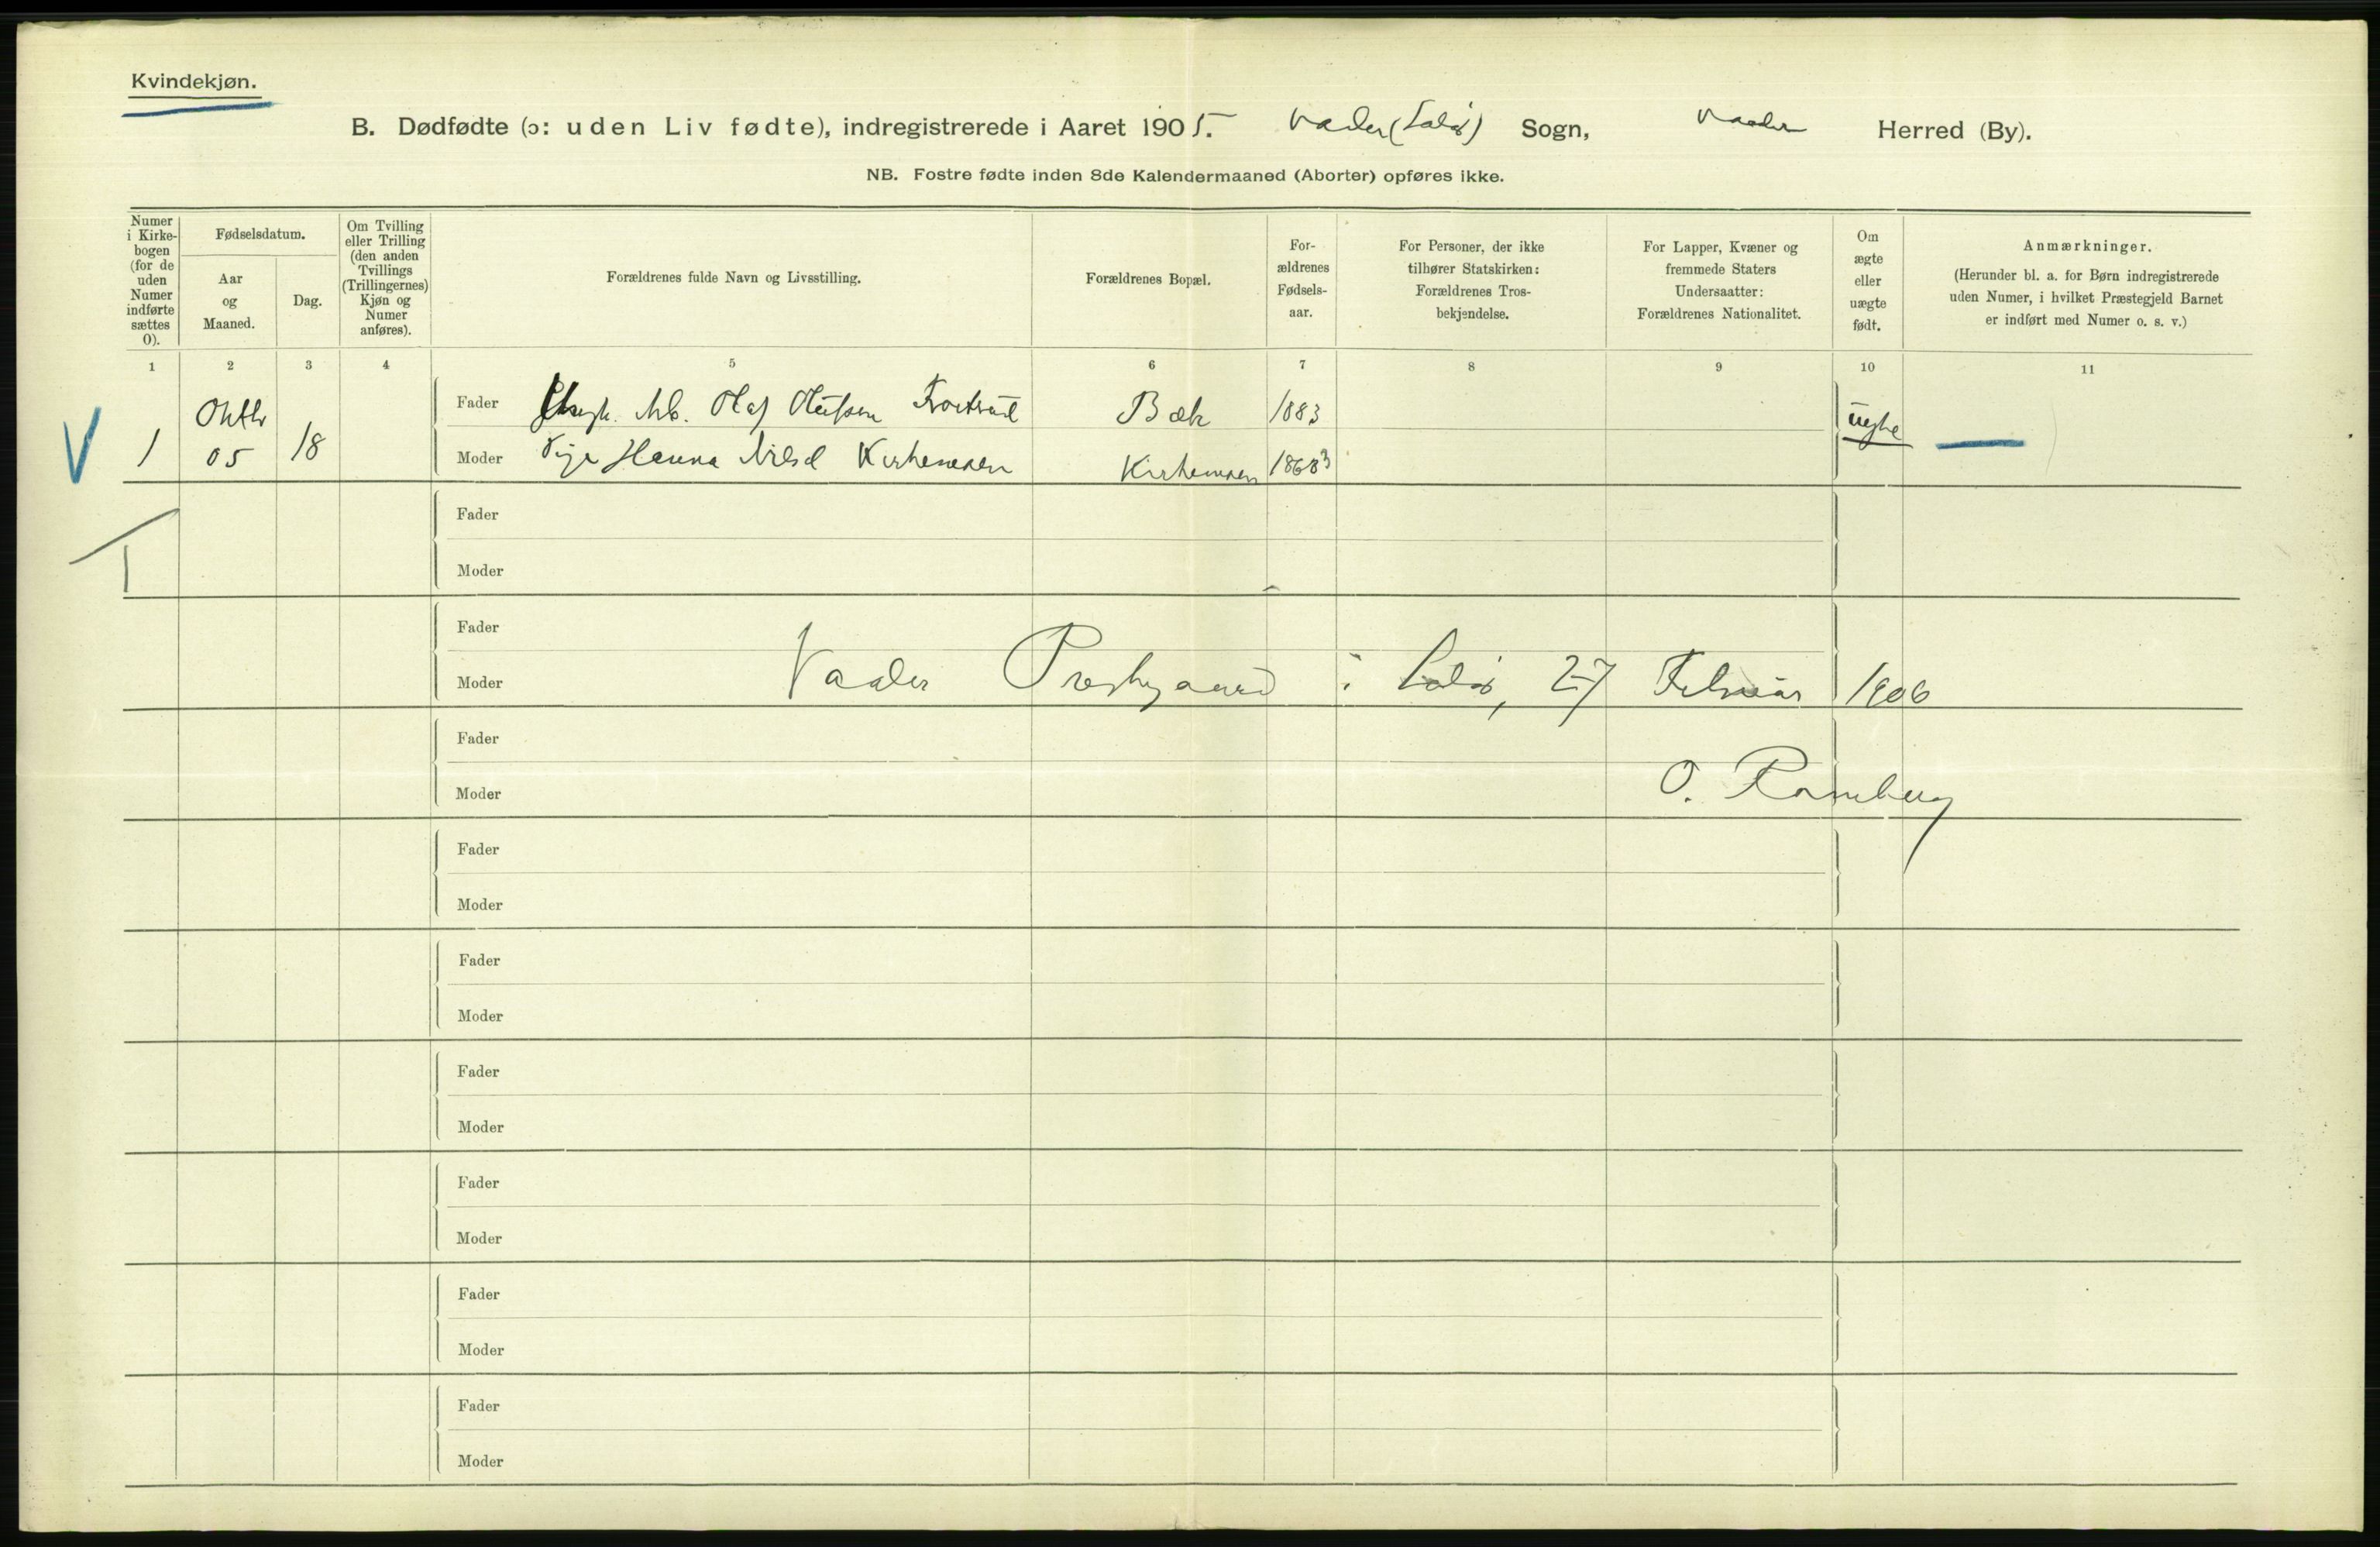 Kvindekjøn.
B. Dødfødte (ɔ: uden Liv fødte), indregistrerede i Aaret 1905. Vaaler (Solør) Sogn, Vaaler Herred (By).
NB. Fostre fødte inden 8de Kalendermaaned (Aborter) opføres ikke.
Numer i Kirke-bogen (for de uden Numer indførte sættes 0).
Fødselsdatum.
Aar og Maaned.
Dag.
Om Tvilling eller Trilling (den anden Tvillings (Trillingernes) Kjøn og Numer anføres).
Forældrenes fulde Navn og Livsstilling.
Forældrenes Bopæl.
For-ældrenes Fødsels-aar.
For Personer, der ikke tilhører Statskirken: Forældrenes Tros-bekjendelse.
For Lapper, Kvæner og fremmede Staters Undersaatter: Forældrenes Nationalitet.
Om ægte eller uægte født.
Anmærkninger.
(Herunder bl. a. for Børn indregistrerede uden Numer, i hvilket Præstegjeld Barnet er indført med Numer o. s. v.)
1 2 3 4 5 6 7 8 9 10 11
V 1 Oktbr 05 18
Fader Olaf Olufsen Bæk 1883
Moder Pige Hanna Nilsd Kirkemoen Kirkemoen 1863 uegte
Fader
Moder
Fader
Moder Vaaler Prestegaard i Solør, 27 Februar 1906
Fader
Moder O. Ramberg
Fader
Moder
Fader
Moder
Fader
Moder
Fader
Moder
Fader
Moder
Fader
Moder